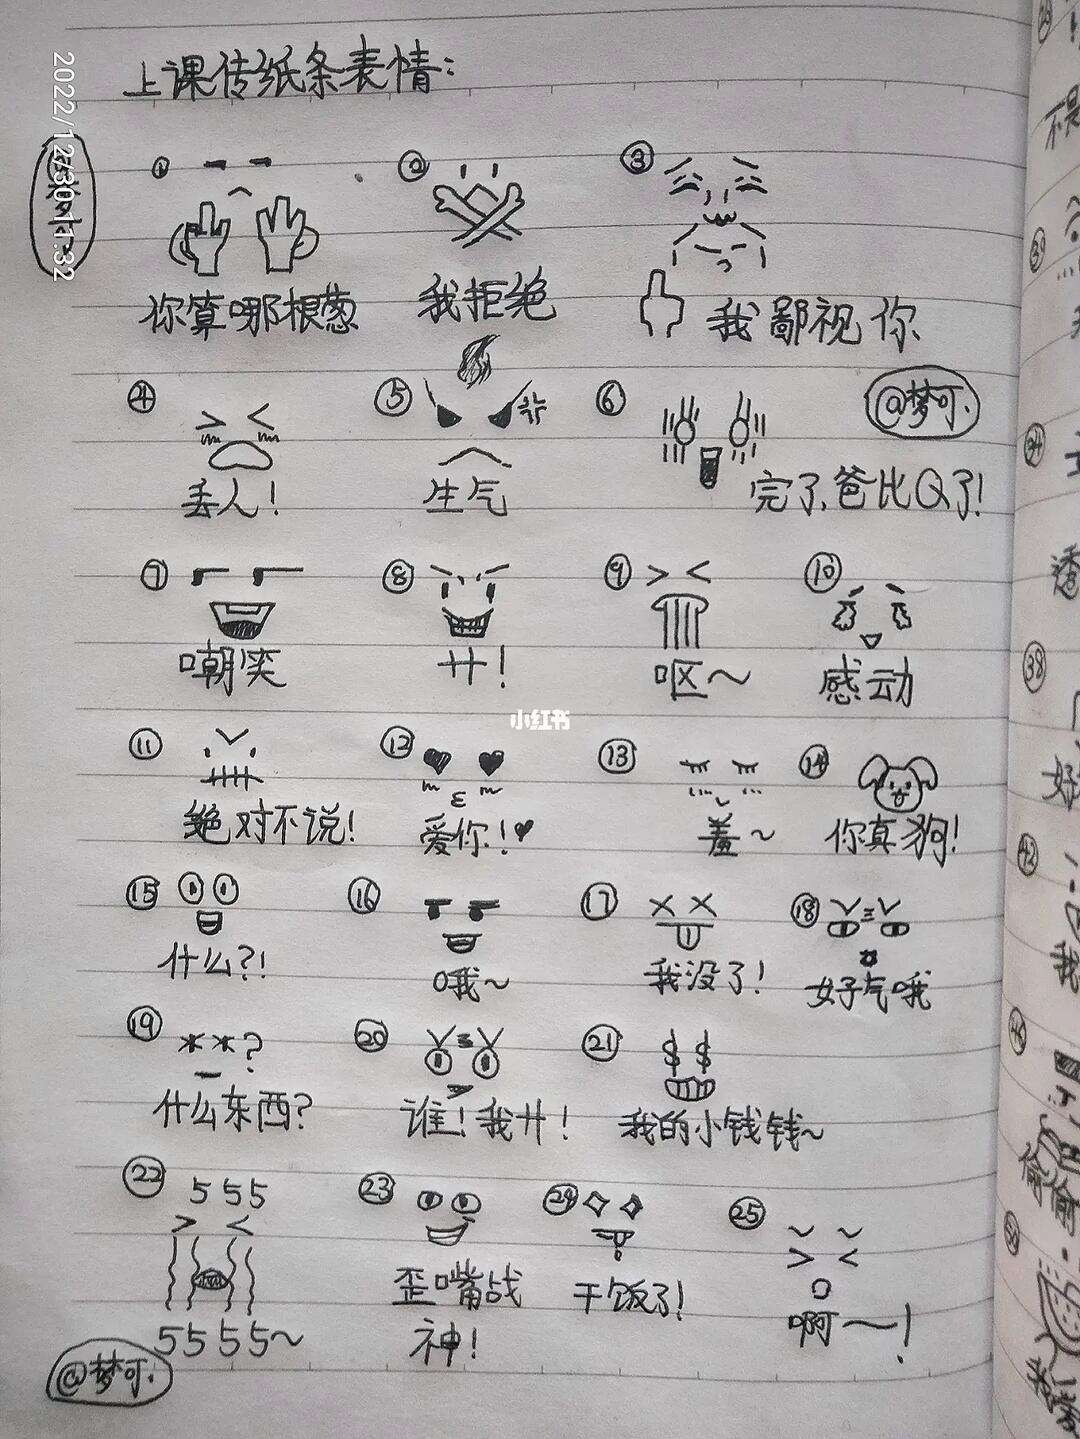 上课传纸条表情：
2022/12/30 11:32
① ② ③
你算哪根葱 我拒绝 我鄙视你
④ ⑤ ⑥ @梦可.
丢人！ 生气 完了,爸比Q了！
⑦ ⑧ ⑨ ⑩
嘲笑 艹！ 呕～ 感动
小红书
⑪ ⑫ ⑬ ⑭
绝对不说！ 爱你！ 羞～ 你真狗！
⑮ ⑯ ⑰ ⑱
什么？！ 哦～ 我没了！ 好气哦
⑲ ？ ⑳ ㉑ $ $
什么东西？ 谁！我艹！ 我的小钱钱～
㉒ 555 ㉓ ㉔ ㉕
5555～ 歪嘴战神！ 干饭了！ 啊～！
@梦可.